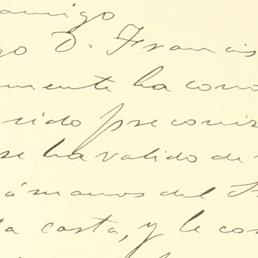 amigo
go D. Francis
mente ha com
sido preconiz
se ha valido de
á manos del
ta carta, y le con